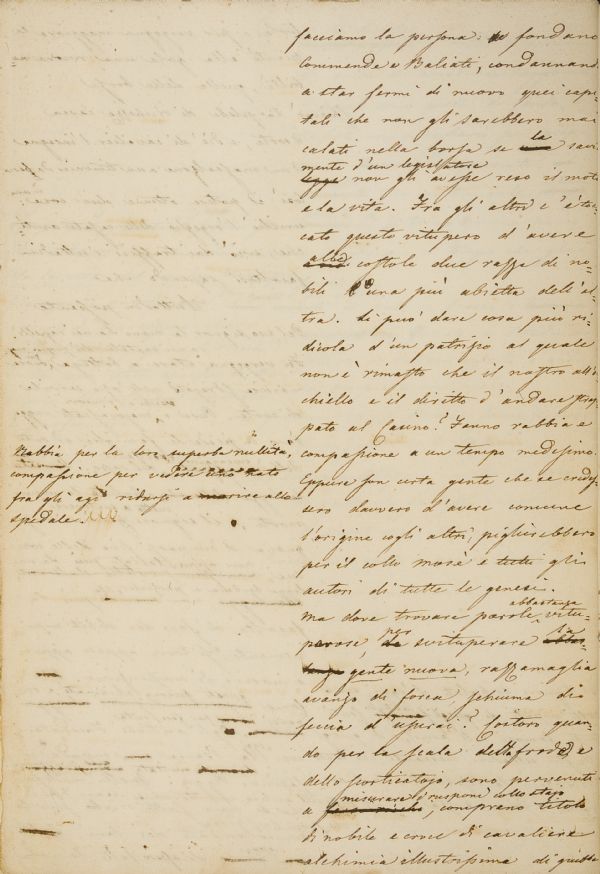 facciamo la persona: fondano
Commende e Baliati, condannando
a star fermi di nuovo quei capi-
tali che non gli sarebbero mai
calati nella borsa se la savi
mente d'un legislatore
non gli avesse reso il moto
e la vita. Fra gli altri c'è toc-
cato questo vitupero d'avere
alle costole due razze di no-
bili l'una più abietta dell'al-
tra. Si può dare cosa più ri-
dicola d'un patrizio al quale
non è rimasto che il nastro all'o-
chiello e il diritto d'andare strap-
pato al Casino? Fanno rabbia e
compassione a un tempo medesimo.
Rabbia per la loro superba nullità,
compassione per vedere uno nato
fra gli agi ridursi a morire allo
spedale.
Eppure son certa gente che se credes-
sero davvero d'avere comune
l'origine cogli altri, piglierebbero
per il collo Mosè e tutti gli
autori di tutte le genesi.
Ma dove trovare parole abbastanza vitu-
perose, per svituperare la
gente nuova, razzamaglia
avanzo di forca schiuma di
feccia d'usurai? Costoro quan-
do per la scala della frode e
dello scorticatojo, sono pervenuti
a misurare i rusponi collo stajo,
comprano titolo
di nobile e croce di cavaliere
alchimia illustrissima di